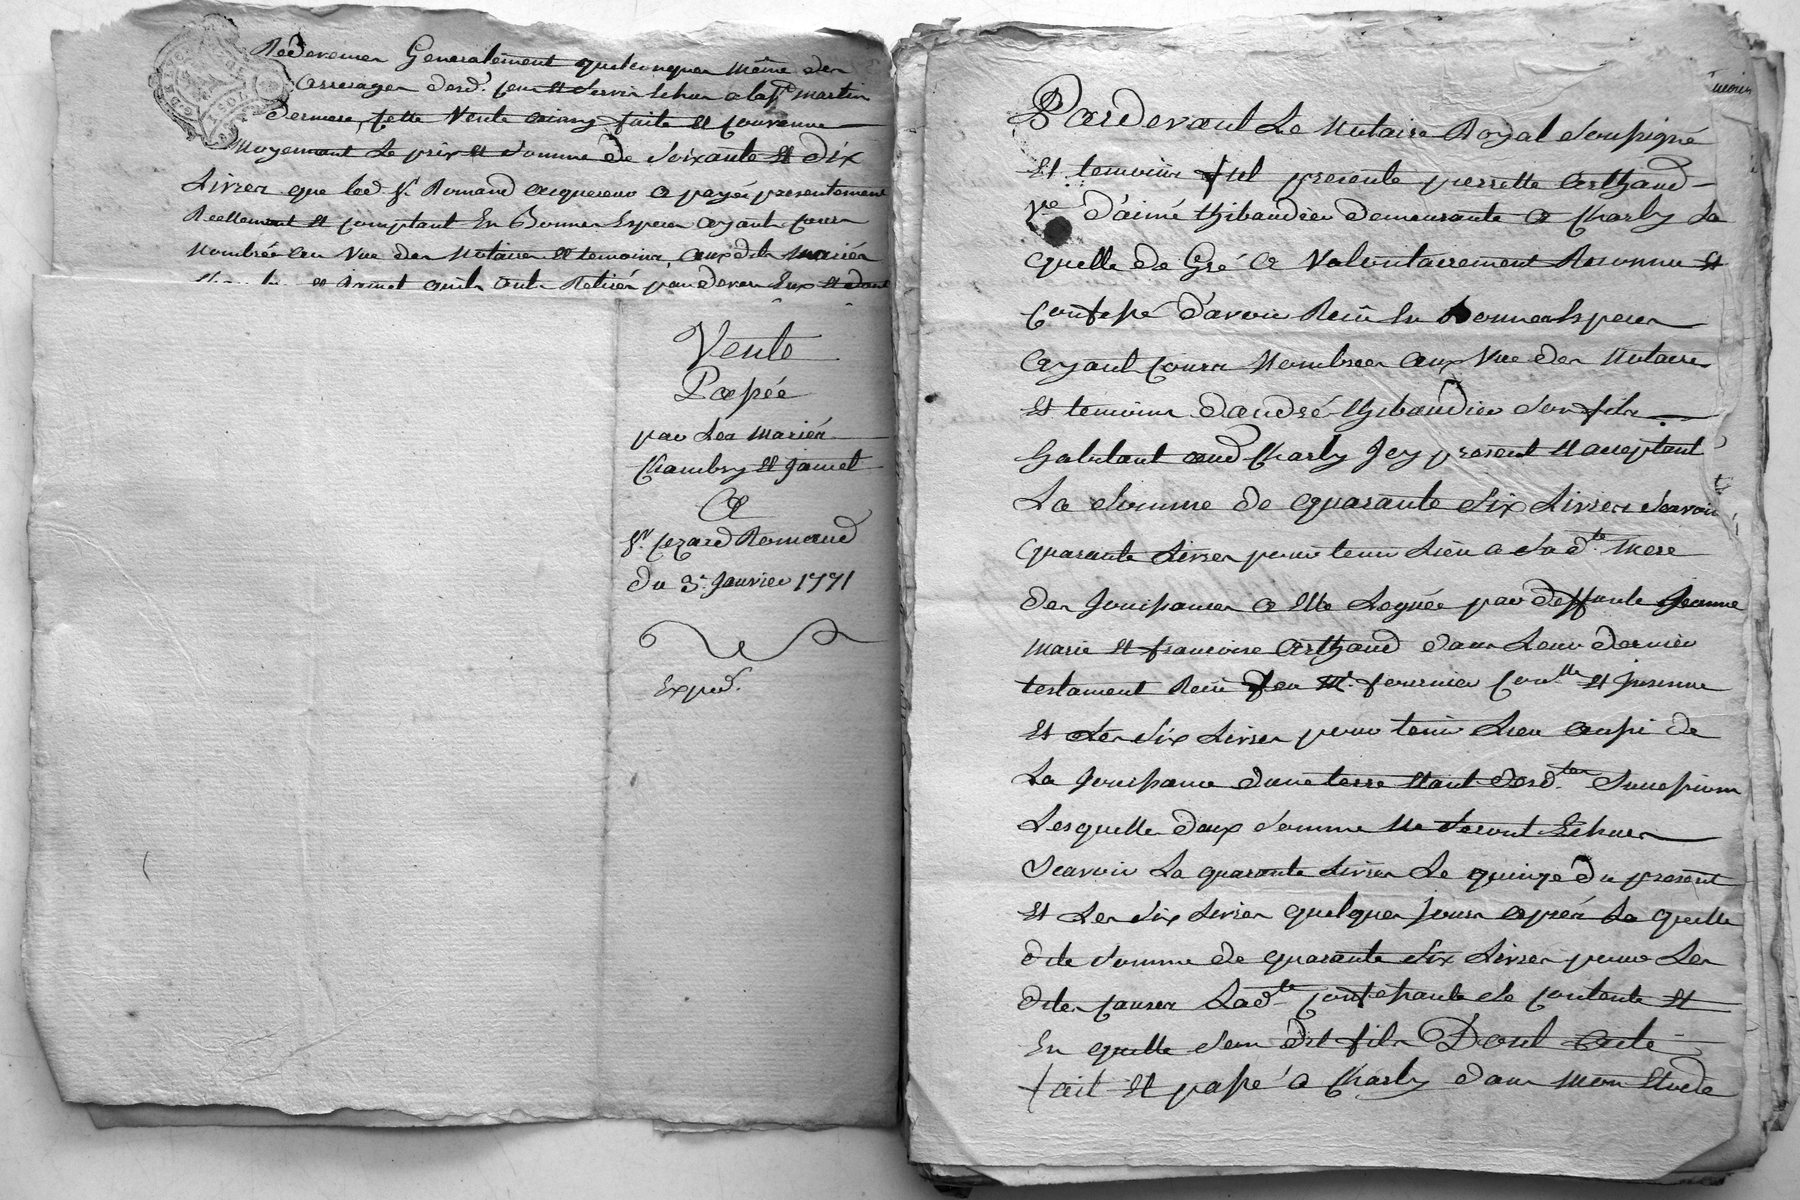 Redevances Generalement quelconques même des
arrerages desd. cens et servis echus a la st martin
derniere, cette Vente ainsy faite et convenue
Moyenant Le prix et somme de soixante et dix
Livres que led Sr. Romand acquereur a payé presentement
Reellement et comptant En Bonnes Especes ayant cours
Nombrée au Vue des Notaires et temoins, auxdits mariés
et Jamet qu'ils ont Retirés par devers Eux et dont
Vente
Passée
par Les Mariés
Chambry et Jamet
A
Sr. Cezard Romand
du 3e. Janvier 1771
Exped.
Pardevant Le Notaire Royal soussigné
Et temoins fut presente pierrette arthaud
Ve d'aimé thibaudier demeurante a Charly La
quelle de Gré a Volontairement Reconnu et
Confessé d'avoir Reçû En Bonnes Especes
ayant cours Nombrées aux Vue des Notaire
Et temoins d'andré thibaudier son fils
habitant aud Charly Icy present et acceptant
La somme de quarante six Livres sçavoir
quarante Livres pour tenir Lieu a sa dte. Mere
des Jouissances a Elle Leguée par deffunte Jeanne
Marie et francoise arthaud dans Leur dernier
testament Reçû feu Me. fournier Conlle et
Et Les six Livres pour tenir Lieu aussi de
La Jouissance d'une terre Etant desd.tes successions
Lesquelle deux somme Ne seront Echues
sçavoir La quarante Livres Le quinze du present
Et Les six Livres quelques Jours après La quelle
dite somme de quarante six Livres pour Les
dites causes Ladte. confessante se contente et
En quitte son dit fils Dont acte
fait et passé a Charly dans mon Etude